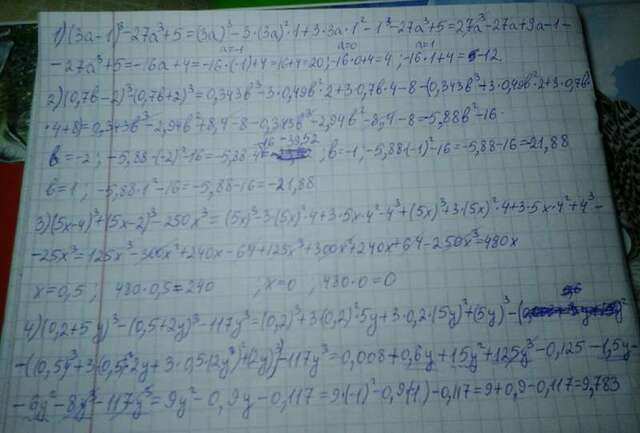 1) (3a-1)³-27a³+5=(3a)³-3·(3a)²·1+3·3a·1²-1³-27a³+5=27a³-27a+9a-1-
a=-1 a=0 a=1
-27a³+5=-16a+4=-16·(-1)+4=16+4=20; -16·0+4=4; -16·1+4=-12
2) (0,7b-2)³-(0,7b+2)³=0,343b³-3·0,49b²·2+3·0,7b·4-8-(0,343b³+3·0,49b²·2+3·0,7b·
·4+8)=0,343b³-2,94b²+8,4-8-0,343b³-2,94b²-8,4-8=-5,88b²-16
b=-2; -5,88·(-2)²-16=-5,88·4-16=-39,52; b=-1; -5,88·(-1)²-16=-5,88-16=-21,88
b=1; -5,88·1²-16=-5,88-16=-21,88
3) (5x-4)³+(5x-2)³-250x³=(5x)³-3·(5x)²·4+3·5x·4²-4³+(5x)³+3·(5x)²·4+3·5x·4²+4³-
-25x³=125x³-300x²+240x-64+125x³+300x²+240x+64-250x³=480x
x=0,5; 480·0,5=240 ; x=0; 480·0=0
4) (0,2+5y)³-(0,5+2y)³-117y³=(0,2)³+3(0,2)²·5y+3·0,2·(5y)²+(5y)³-
-((0,5)³+3(0,5)²·2y+3·0,5·(2y)²+(2y)³)-117y³=0,008+0,6y+15y²+125y³-0,125-1,5y-
-6y²-8y³-117y³=9y²-0,9y-0,117=9·(-1)²-0,9(-1)-0,117=9+0,9-0,117=9,783